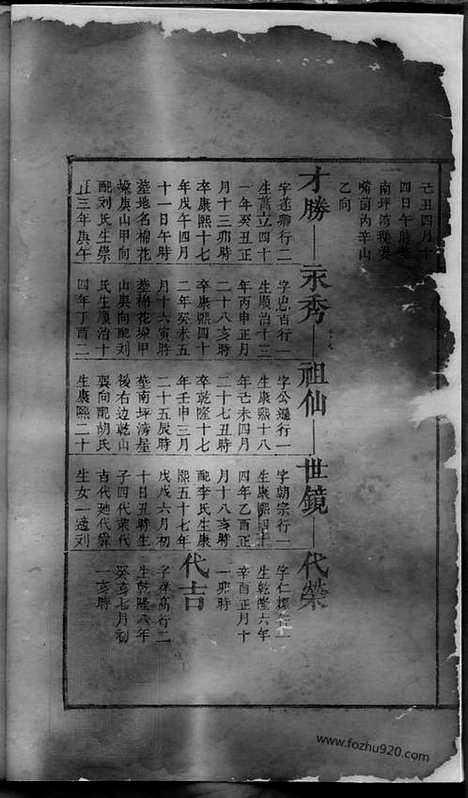 己丑四月十
四日午時
南坪灣
嘴前丙辛山
乙向
才勝—永秀—祖仙—世鏡—代榮
字蓮卿行二
生萬歷四十
一年癸丑正
月十三卯時
卒康熙十七
年戊午四月
十一日午時
墓地名棉花
垛庚山甲向
配刘氏生崇
正三年庚午
字也百行一
生順治十三
年丙申正月
二十八亥時
卒康熙四十
二年癸未五
月十六寅時
墓棉花垛甲
山庚向配刘
氏生順治十
四年丁酉二
字公選行一
生康熙十八
年己未四月
二十七丑時
卒乾隆十七
年壬申三月
二十五辰時
墓南坪灣屋
後右边乾山
巽向配胡氏
生康熙二十
字朝宗行二
生康熙四十
四年乙酉正
月十八亥時
配李氏生康
熙五十七年
戊戌六月初
十日丑時生
子四代榮代
吉代
生女一适刘
字仁行一
生乾隆六年
辛酉正月十
一卯時
代吉
字祥高行二
生乾隆八年
癸亥七月初
一亥時
www.fozhu920.com